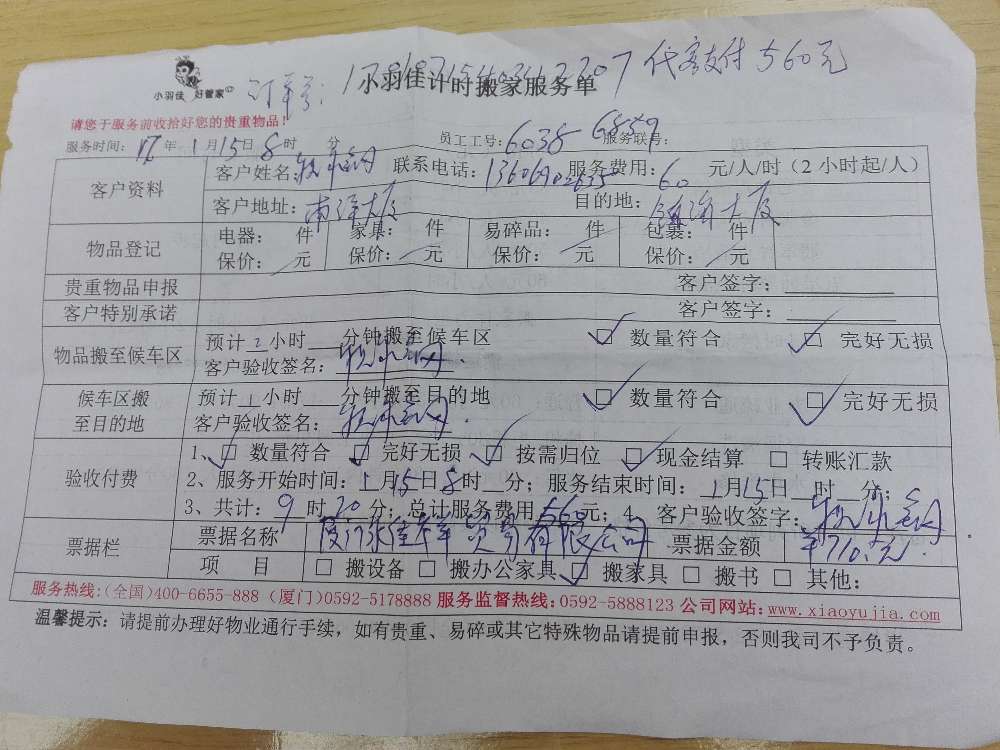 小羽佳 好管家
代客支付560元
订单号:
小羽佳计时搬家服务单
请您于服务前收拾好您的贵重物品!
服务时间: 年 1月15日8时 分 员工工号:6038 服务联号:
客户资料 客户姓名: 联系电话: 服务费用:60 元/人/时(2小时起/人)
客户地址:南洋大厦 目的地: 大厦
物品登记 电器: 件 家具: 件 易碎品: 件 包裹: 件
保价: 元 保价: 元 保价: 元 保价: 元
贵重物品申报 客户签字:
客户特别承诺 客户签字:
物品搬至候车区 预计2小时 分钟搬至候车区 ☑ 数量符合 ☑ 完好无损
客户验收签名:
候车区搬至目的地 预计1小时 分钟搬至目的地 ☑ 数量符合 ☑ 完好无损
客户验收签名:
验收付费 1、☑ 数量符合 ☑ 完好无损 ☑ 按需归位 ☑ 现金结算 □ 转账汇款
2、服务开始时间:1月15日8时 分;服务结束时间:1月15日 时 分;
3、共计:9时20分;总计服务费用560元;4、客户验收签字:
票据栏 票据名称 贸易有限公司 票据金额 ¥710.元
项 目 □ 搬设备 □ 搬办公家具 ☑ 搬家具 □ 搬书 □ 其他:
服务热线:(全国)400-6655-888 (厦门)0592-5178888 服务监督热线:0592-5888123 公司网站:www.xiaoyujia.com
温馨提示:请提前办理好物业通行手续,如有贵重、易碎或其它特殊物品请提前申报,否则我司不予负责。